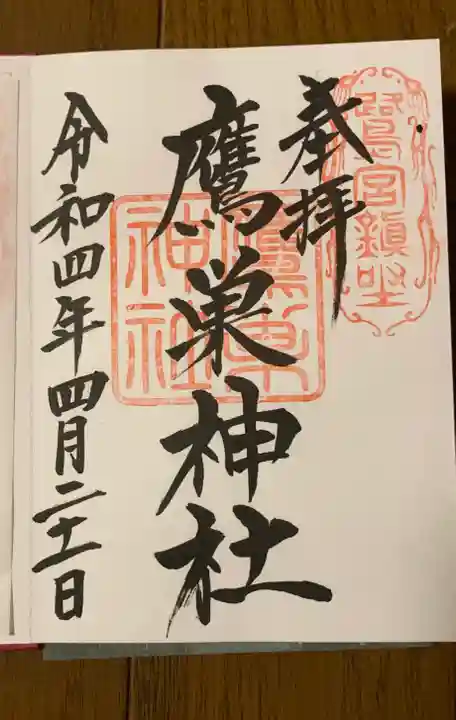 鷺宮鎮坐
奉拝
鷹巣神社
鷹巣
神社
令和四年四月二十一日